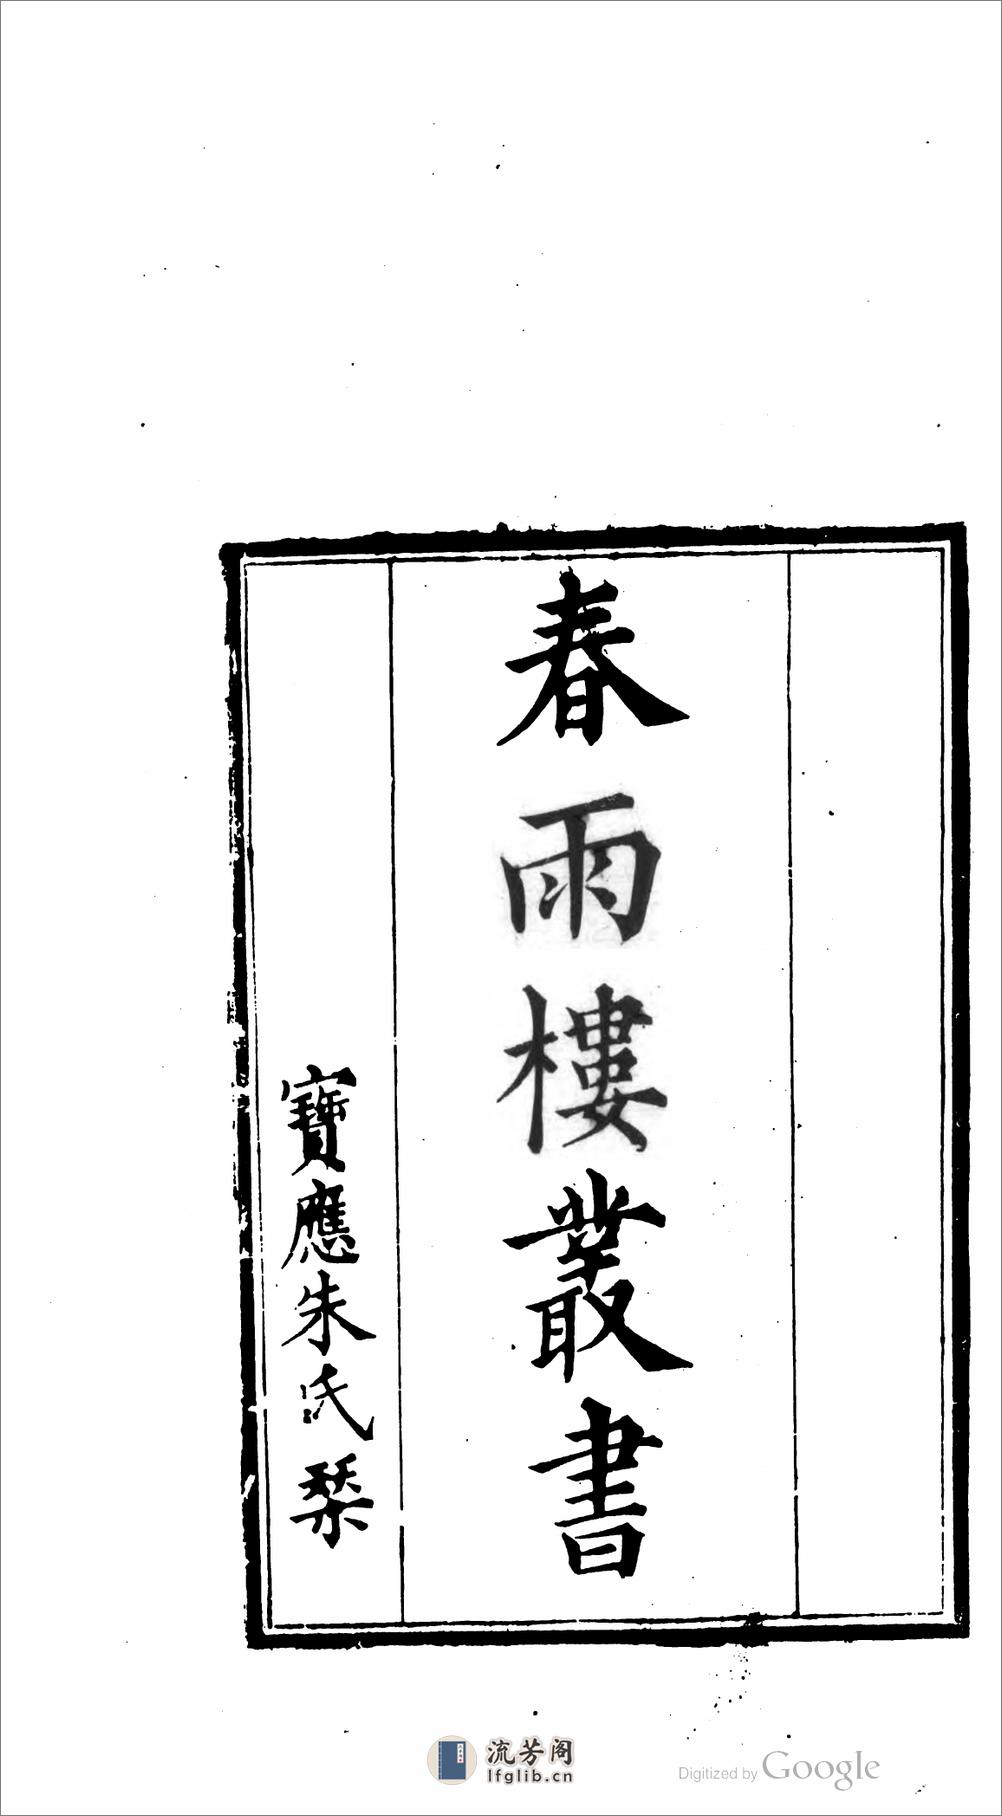 春雨樓叢書
寶應朱氏栞
流芳阁
lfglib.cn
Digitized by Google